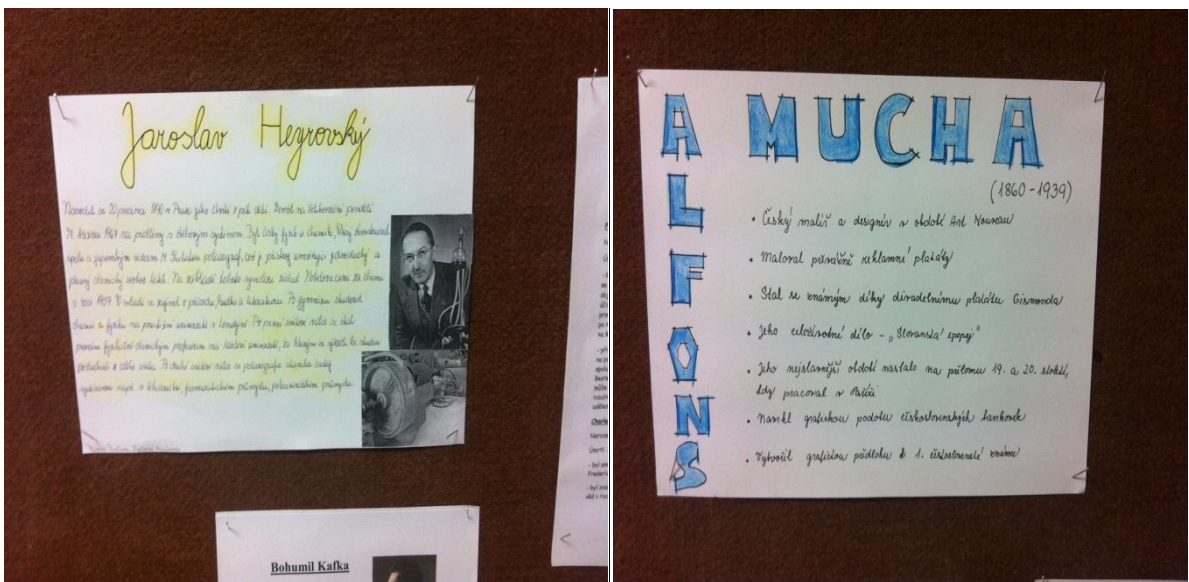 Jaroslav Heyrovský
Narodil se 20. prosince 1890 v Praze jako čtvrté z pěti dětí. Zemřel na
března 1967 na problémy s Byl český fyzik a chemik, který zkonstruoval
spolu s japonským vědcem M. Šikatou polarograf, což je přístroj umožňující jednoduchý a
přesný chemický rozbor látek. Na základě tohoto vynálezu získal Nobelovu cenu za chemii
v roce 1959. V mládí se zajímal o přírodu, hudbu a literaturu. Po gymnáziu studoval
chemii a fyziku na univerzitě v Londýně. Po první světové válce se stal
prvním fyzikálně-chemickým profesorem na Karlově univerzitě, za kterým se sjížděli ke studiu
posluchači z celého světa. Po druhé světové válce se polarografie
např. v lékařství, farmaceutickém průmyslu, potravinářském průmyslu.
Bohumil Kafka
A MUCHA
ALFONS
(1860-1939)
• Český malíř a designér v období Art Nouveau
• Maloval převážně reklamní plakáty
• Stal se známým díky divadelnímu plakátu Gismonda
• Jeho celoživotní dílo - „Slovanská epopej"
• Jeho nejslavnější období nastalo na přelomu 19. a 20. století,
kdy pracoval v Paříži
• Navrhl grafickou podobu československých bankovek
• Vytvořil grafickou předlohu k 1. československé známce